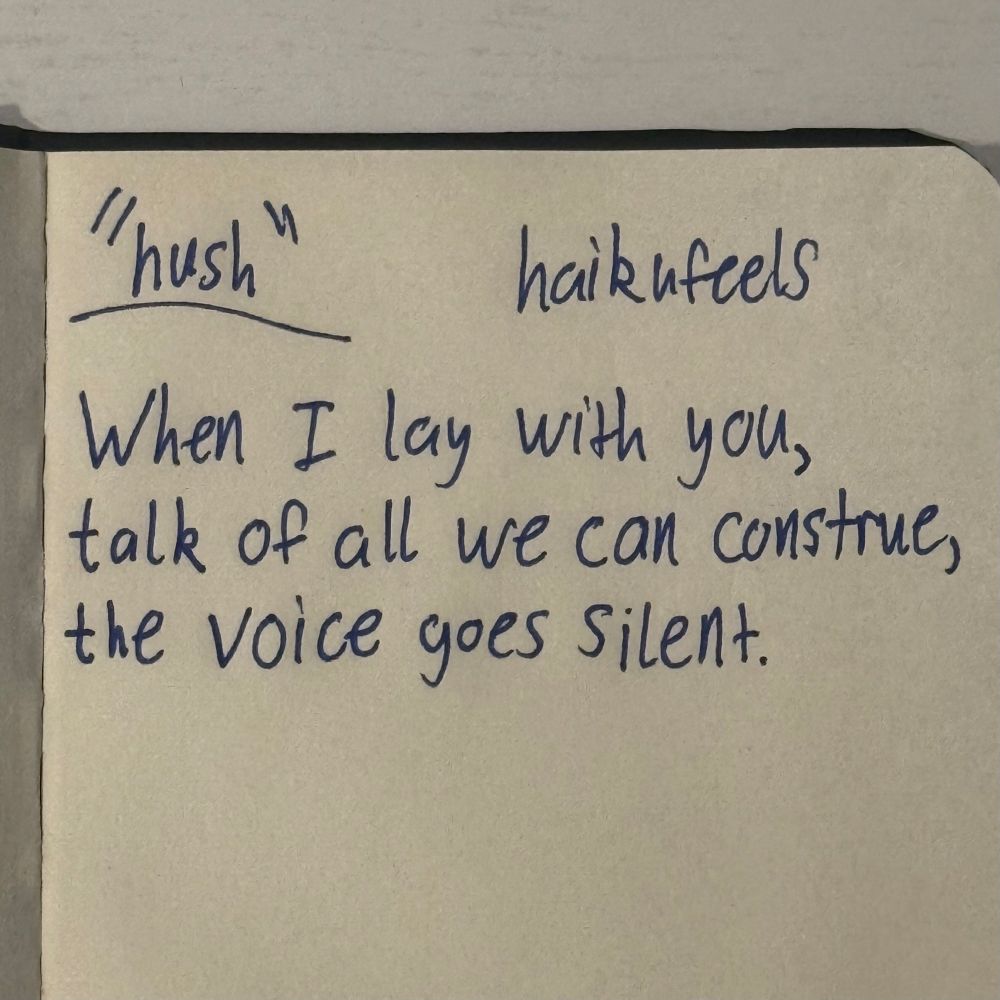 "hush" haikufeels
When I lay with you,
talk of all we can construe,
the voice goes silent.